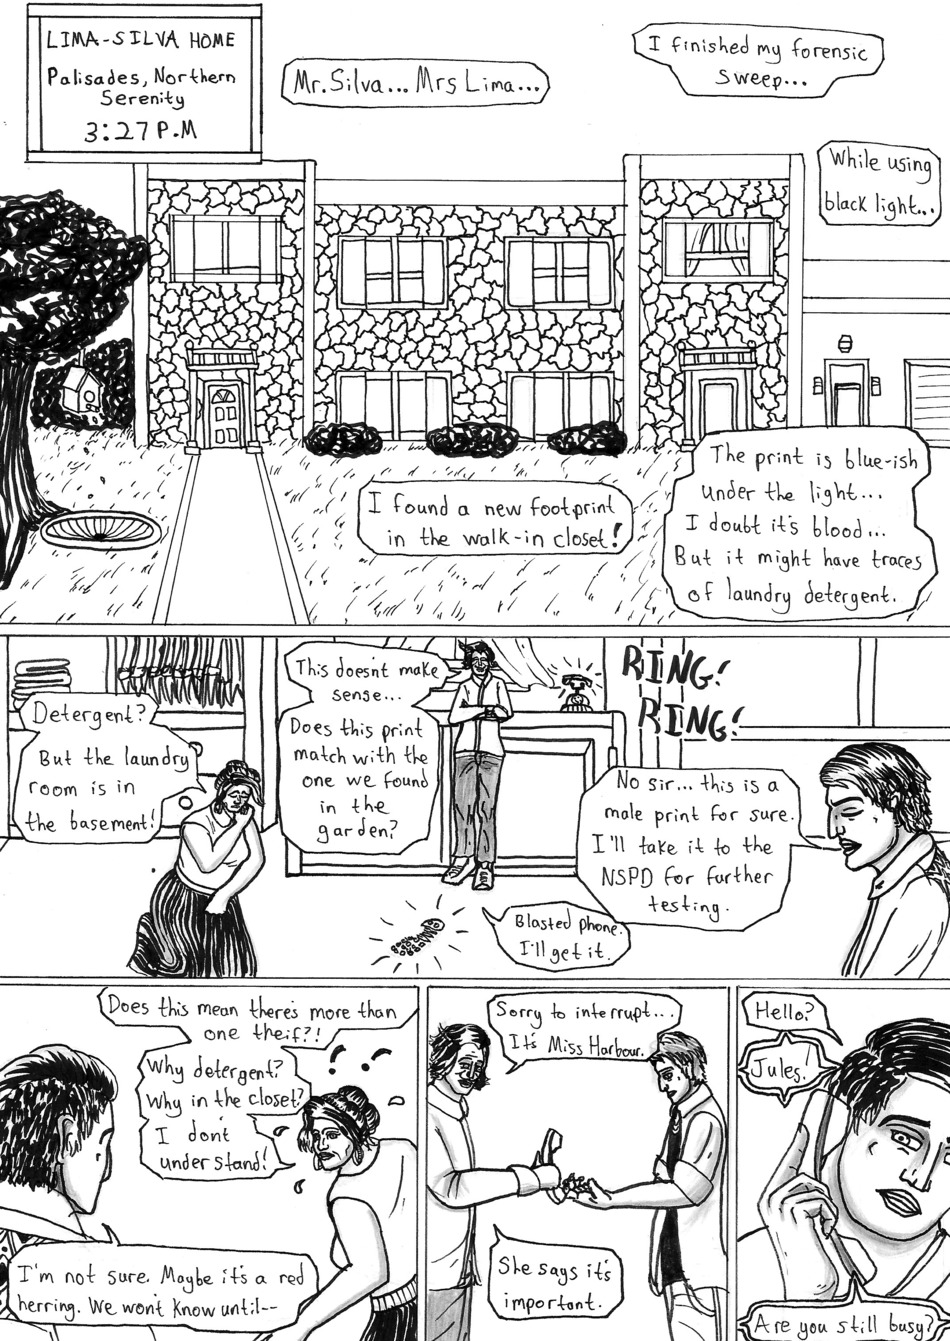 LIMA-SILVA HOME
Palisades, Northern
Serenity
3:27 P.M
Mr. Silva... Mrs Lima...
I finished my forensic
sweep...
While using
black light...
I found a new footprint
in the walk-in closet!
The print is blue-ish
under the light...
I doubt it's blood...
But it might have traces
of laundry detergent.
Detergent?
But the laundry
room is in
the basement!
This doesn't make
sense...
Does this print
match with the
one we found
in the
garden?
RING!
RING!
No sir... this is a
male print for sure.
I'll take it to the
NSPD for further
testing.
Blasted phone.
I'll get it.
Does this mean there's more than
one theif?!
Why detergent?
Why in the closet?
I don't
understand!
I'm not sure. Maybe it's a red
herring. We won't know until--
Sorry to interrupt...
It's Miss Harbour.
She says it's
important.
Hello?
Jules!
Are you still busy?